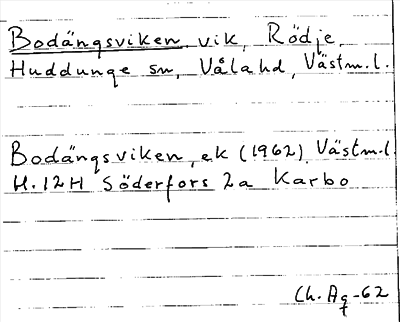 Bodängsviken vik, Rödje,
Huddunge sn, Våla hd, Västm.l.
Bodängsviken, ek (1962) Västm.l.
H. 12H Söderfors 2a Karbo
Ch. Ag -62